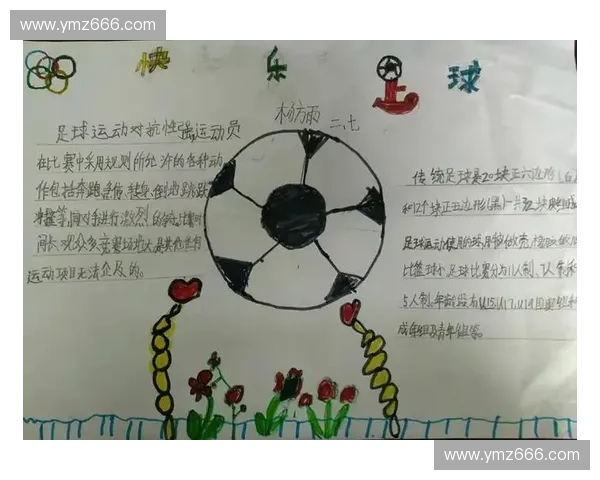 www.ymz666.com
快 乐 足 球
杨方雨 二、七
足球运动对抗性强运动员
在比赛中采用规则所允许的各种动
作包括奔跑急停、转身、倒地、跳跃、
冲撞等,同对手进行激烈的
间长观众多竞赛场地大是其他任何
运动项目无法企及的。
传统足球是20块正六边形(白)
和12个块正五边形(黑)一共32块
足球运动使用的球,
比篮球小足球比赛分为11人制、7人制和
5人制。年龄段有U15、U17、U19
成年组及青年组等。
www.ymz666.com